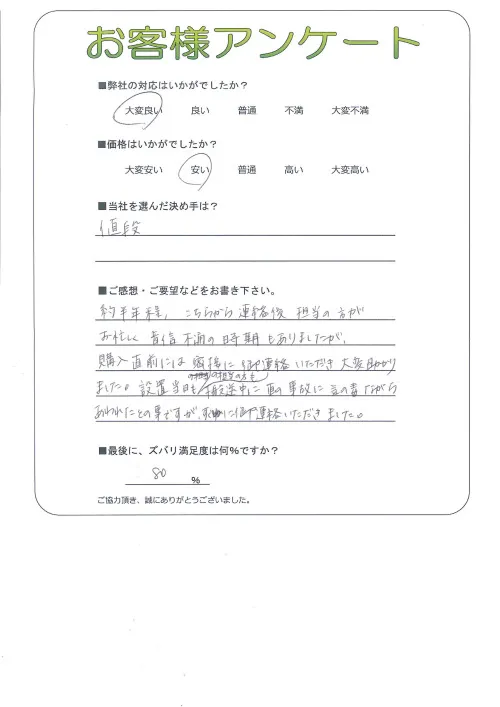 お客様アンケート
■弊社の対応はいかがでしたか？
大変良い 良い 普通 不満 大変不満
■価格はいかがでしたか？
大変安い 安い 普通 高い 大変高い
■当社を選んだ決め手は？
値段
■ご感想・ご要望などをお書き下さい。
約半年程、こちらから連絡後 担当の方が
お忙しく 音信不通の時期もありましたが、
購入直前には 密接に御連絡いただき 大変助かり
の担当の方も
ました。設置当日も 搬送中に 車の事故に 気の毒ながら
あわれたとの事ですが、 に御連絡いただきました。
■最後に、ズバリ満足度は何％ですか？
80 ％
ご協力頂き、誠にありがとうございました。